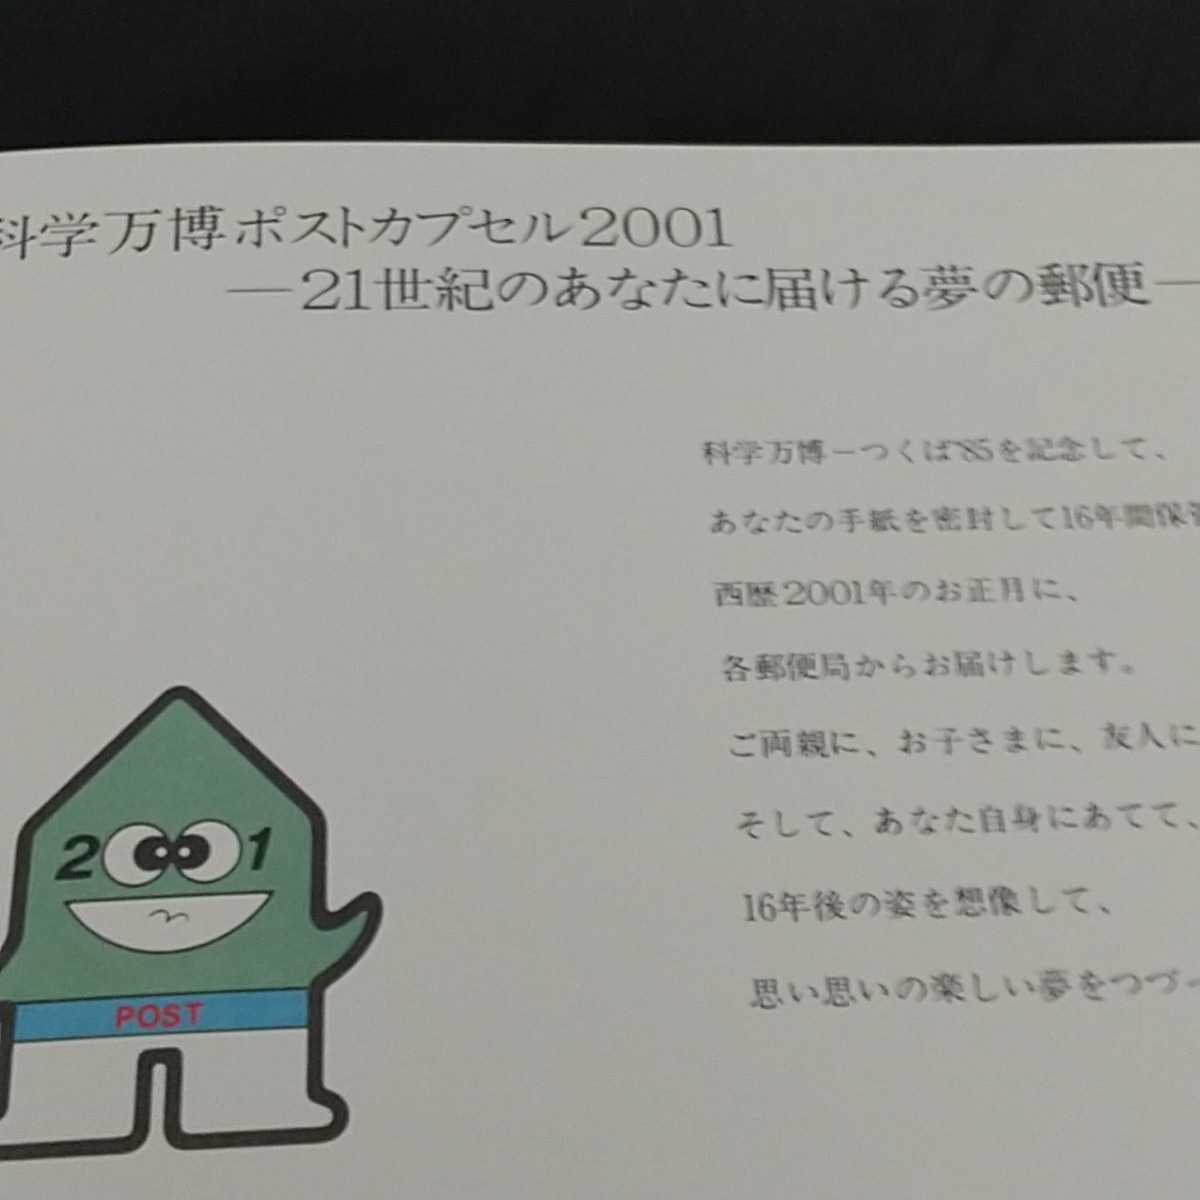 科学万博ポストカプセル2001
—21世紀のあなたに届ける夢の郵便—
科学万博−つくば'85を記念して、
あなたの手紙を密封して16年間保管
西歴2001年のお正月に、
各郵便局からお届けします。
ご両親に、お子さまに、友人に
そして、あなた自身にあてて、
16年後の姿を想像して、
思い思いの楽しい夢をつづっ
2001
POST